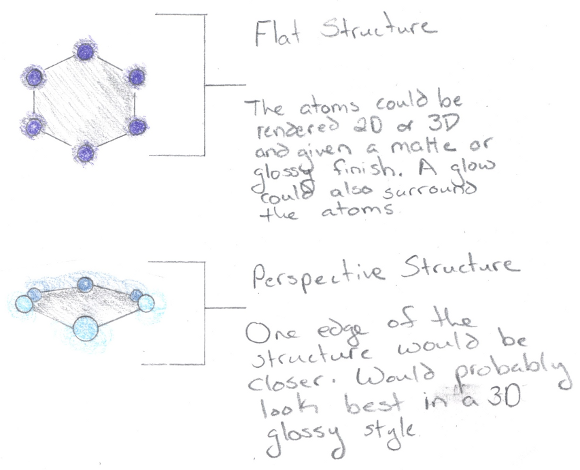 Flat Structure
The atoms could be
rendered 2D or 3D
and given a matte or
glossy finish. A glow
could also surround
the atoms
Perspective Structure
One edge of the
structure would be
closer. Would probably
look best in a 3D
glossy style